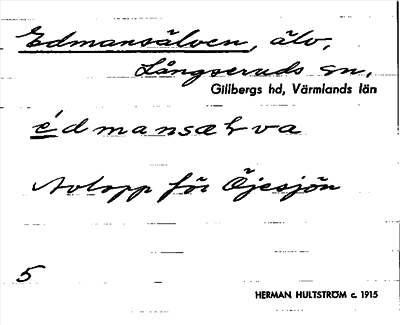 Edmansälven, älv,
Långseruds sn,
Gillbergs hd, Värmlands län
édmansælva
Avlopp för Öjesjön
5
HERMAN HULTSTRÖM c. 1915